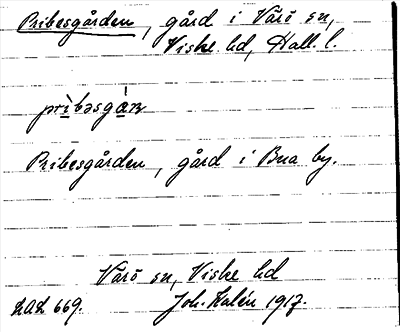 Pribesgården, gård i Värö sn,
Viske hd, Hall. l.
prìbəsgá̱ṇ
Pribesgården, gård i Bua by.
Värö sn, Viske hd
LAL 669. Joh. Kalén 1917.